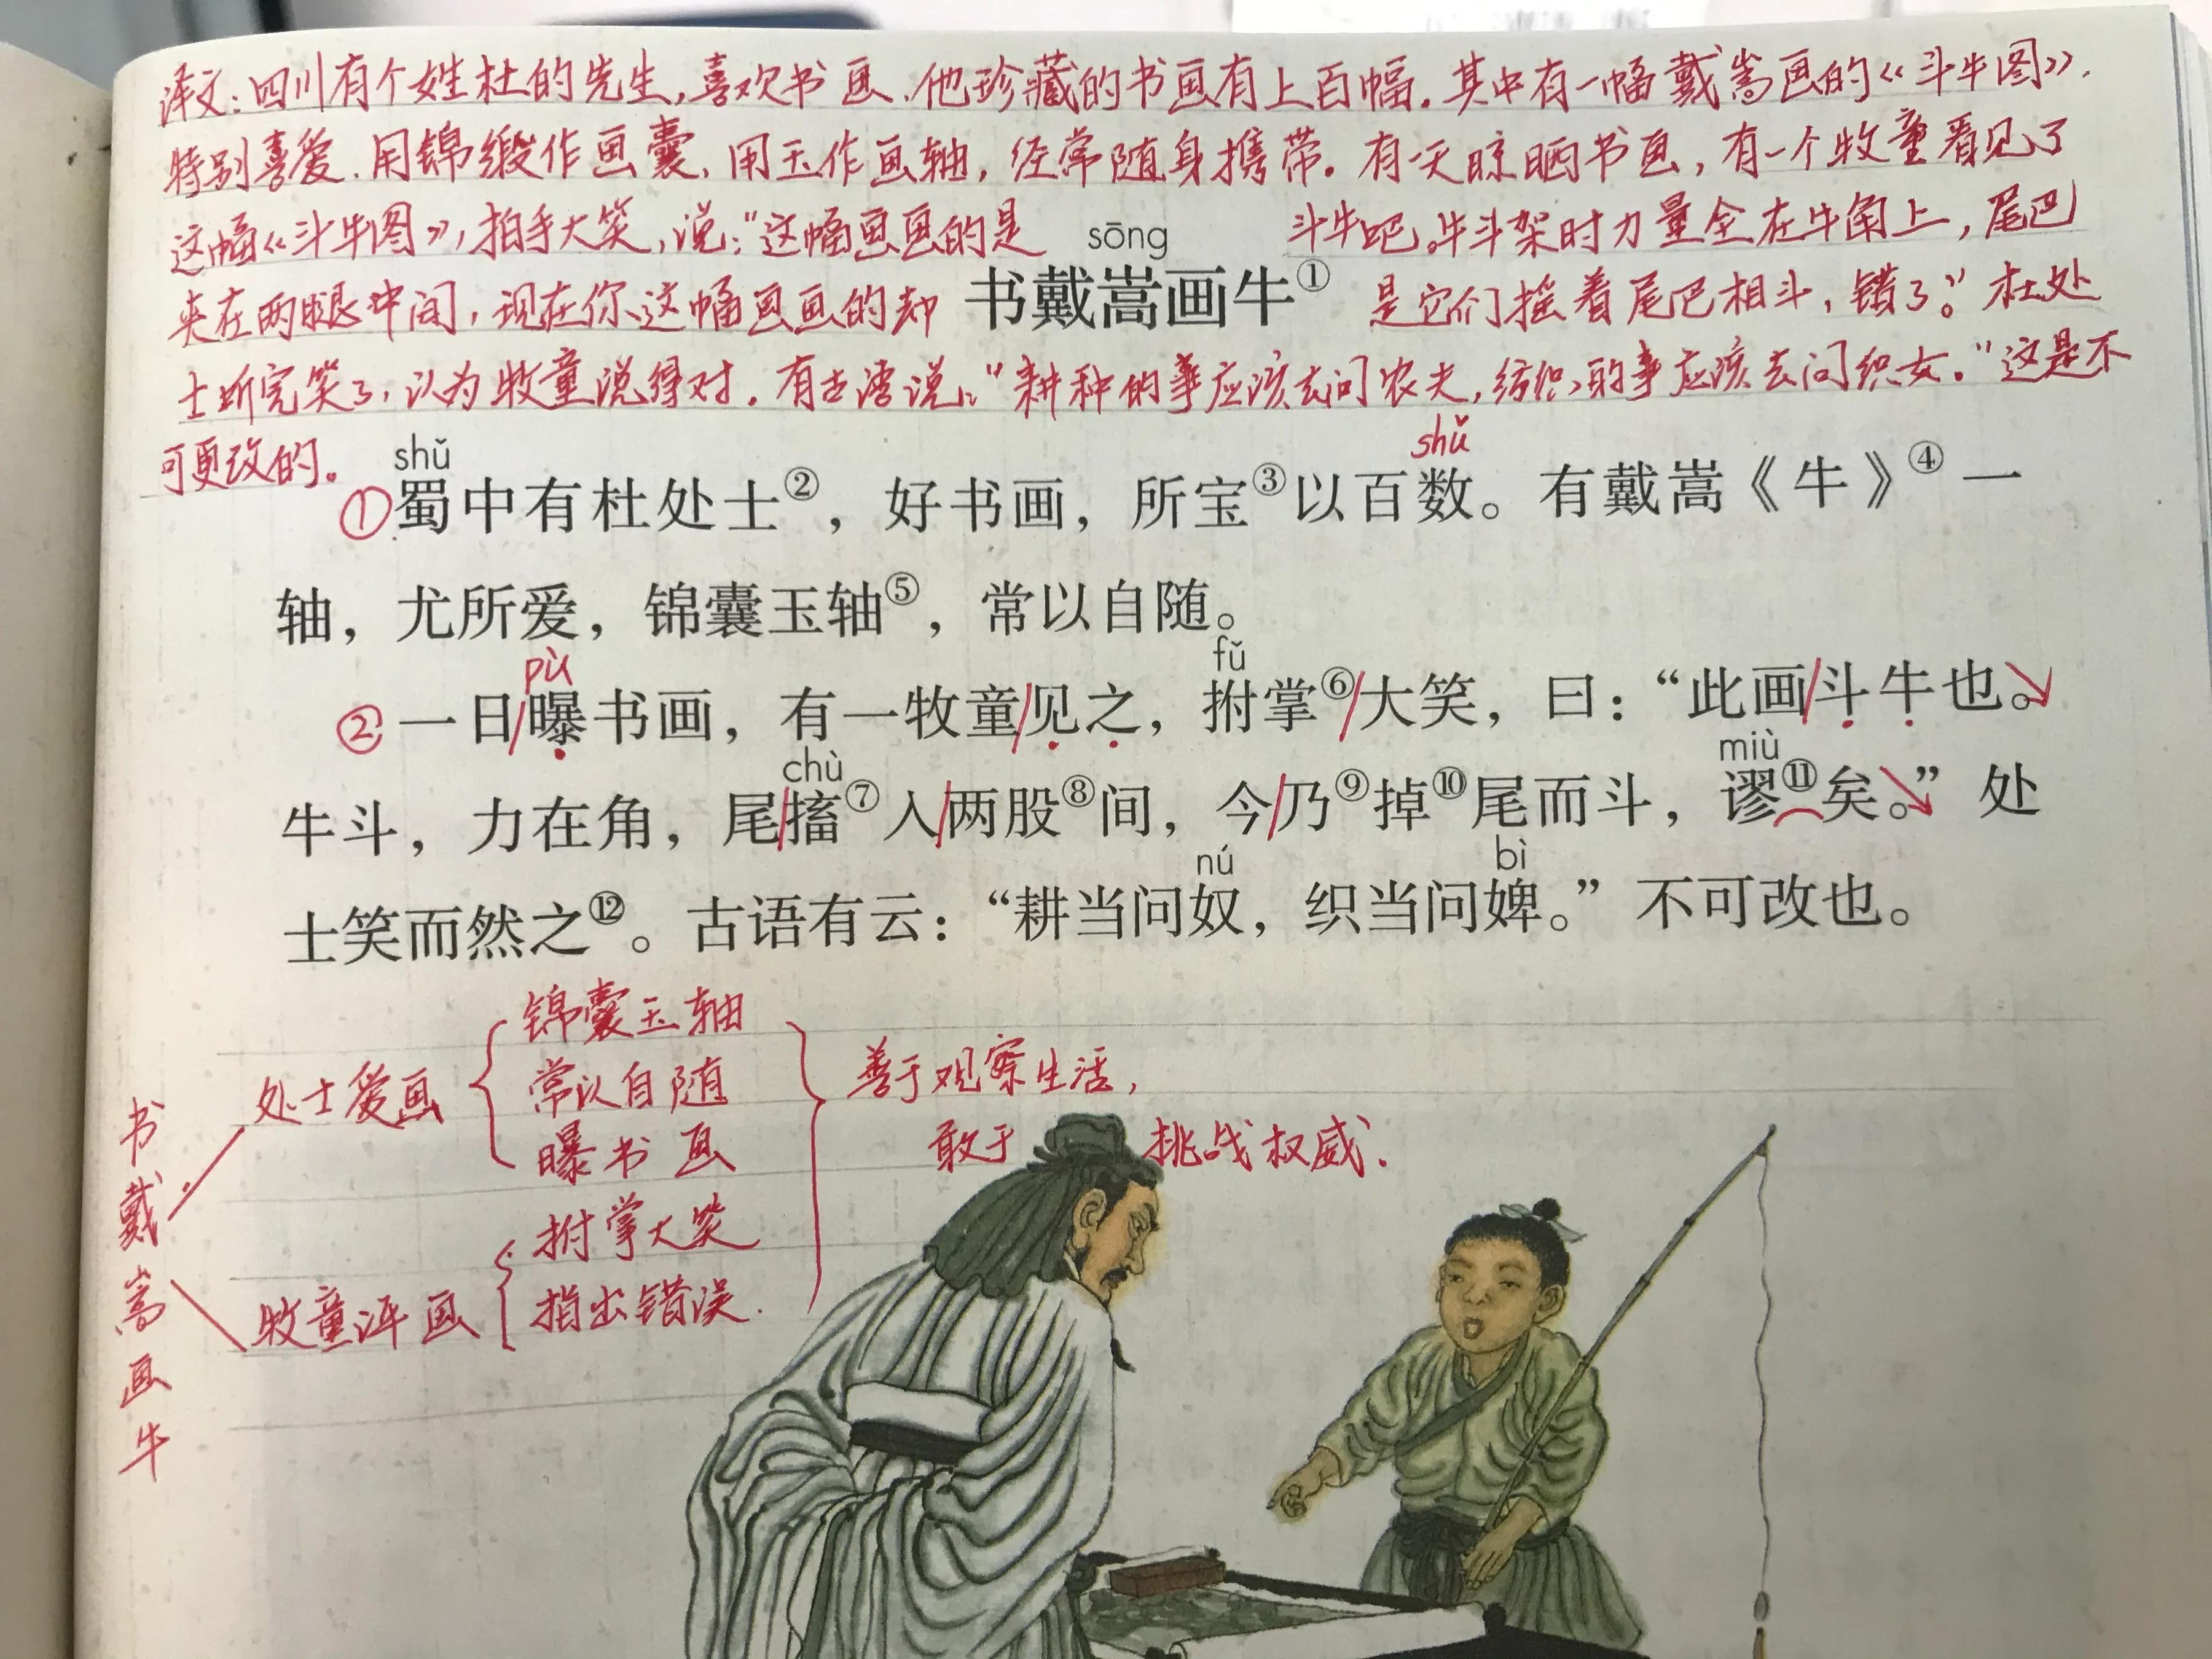 译文:四川有个姓杜的先生,喜欢书画.他珍藏的书画有上百幅.其中有一幅戴嵩画的《斗牛图》.
特别喜爱.用锦缎作画囊,用玉作画轴,经常随身携带。有一天晾晒书画,有一个牧童看见了
这幅《斗牛图》,拍手大笑,说:"这幅画画的是 斗牛吧。牛斗架时力量全在牛角上,尾巴
sōng
夹在两腿中间,现在你这幅画画的却 是它们摇着尾巴相斗,错了。"杜处
书戴嵩画牛①
士听完笑了,认为牧童说得对.有古语说:"耕种的事应该去问农夫,纺织的事应该去问织女。"这是不
可更改的。
shǔ shǔ
①蜀中有杜处士②,好书画,所宝③以百数。有戴嵩《牛》④一
轴,尤所爱,锦囊玉轴⑤,常以自随。
pù fǔ
②一日/曝书画,有一牧童/见之,拊掌⑥/大笑,曰:“此画/斗牛也。
chù miù
牛斗,力在角,尾/搐⑦入/两股⑧间,今/乃⑨掉⑩尾而斗,谬⑪矣。”处
nú bì
士笑而然之⑫。古语有云:“耕当问奴,织当问婢。”不可改也。
书戴嵩画牛
处士爱画
锦囊玉轴
常以自随
曝书画
牧童评画
拊掌大笑
指出错误.
善于观察生活,
敢于 挑战权威.